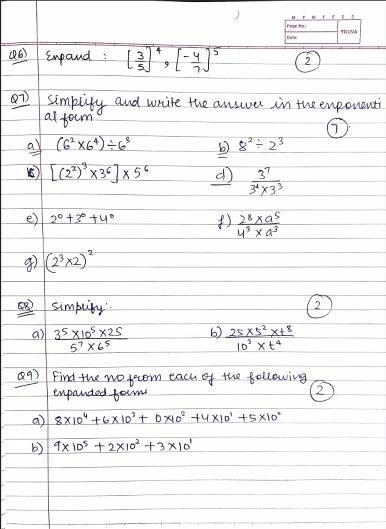 M T W T F S S
Page No.:
YOUVA
Date:
Q6) Expand : [3/5]⁴, [-4/7]⁵ (2)
Q7) Simplify and write the answer in the exponenti
al form (7)
a) (6² × 6⁴) ÷ 6⁸ b) 8² ÷ 2³
c) [(2²)³ × 3⁶] × 5⁶ d) 3⁷ / 3⁴ × 3³
e) 2⁰ + 3⁰ + 4⁰ f) 2⁸ × a⁵ / 4³ × a³
g) (2³ × 2)²
Q8) Simplify: (2)
a) 3⁵ × 10⁵ × 25 / 5⁷ × 6⁵ b) 25 × 5² × t⁸ / 10³ × t⁴
Q9) Find the no from each of the following
expanded forms (2)
a) 8×10⁴ + 6×10³ + 0×10² + 4×10¹ + 5×10⁰
b) 9×10⁵ + 2×10² + 3×10¹